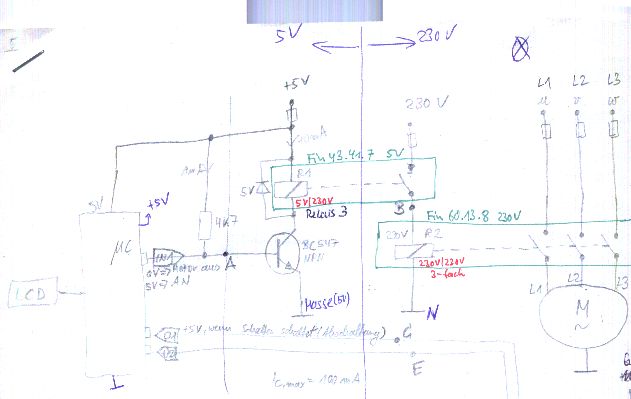 I
5V
230V
L1
L2
L3
u
v
w
+5V
230V
Fin 43.41.7 5V
R1
5V
5V/230V
Relais 3
5V
+5V
µC
4k7
A
BC547
NPN
B
Fin 60.13.8 230V
230V
R2
230V/230V
3-fach
Motor aus
5V => AN
LCD
Masse(5V)
N
L1
L2
L3
M
~
+5V, wenn Schalter
C
E
Ic,max = 100mA